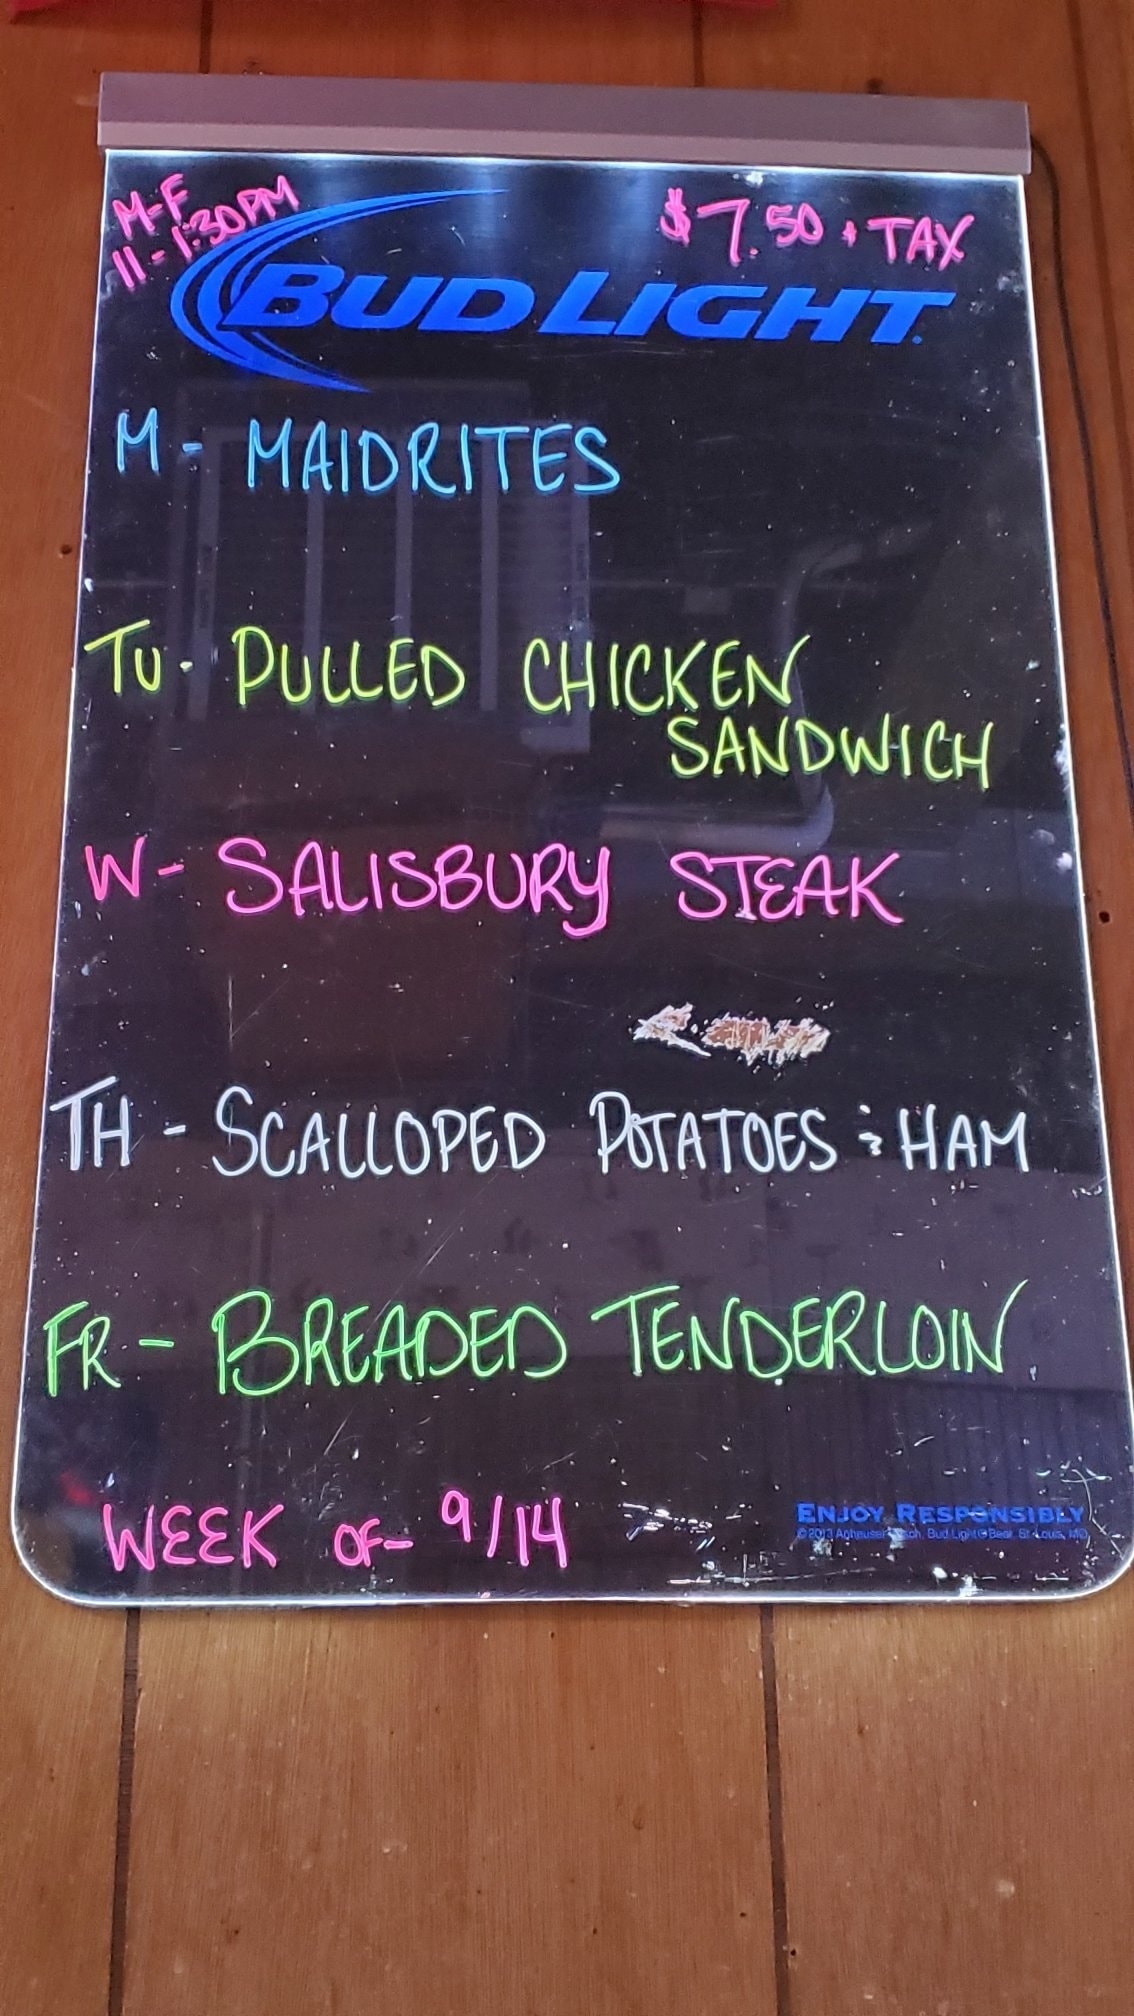 M-F
11-1:30PM
$7.50 + TAX
BUD LIGHT
M- MAIDRITES
TU- PULLED CHICKEN
SANDWICH
W- SALISBURY STEAK
TH- SCALLOPED POTATOES & HAM
FR- BREADED TENDERLOIN
WEEK OF- 9/14
ENJOY RESPONSIBLY
© 2013 Bud Light® Beer, St. Louis, MO